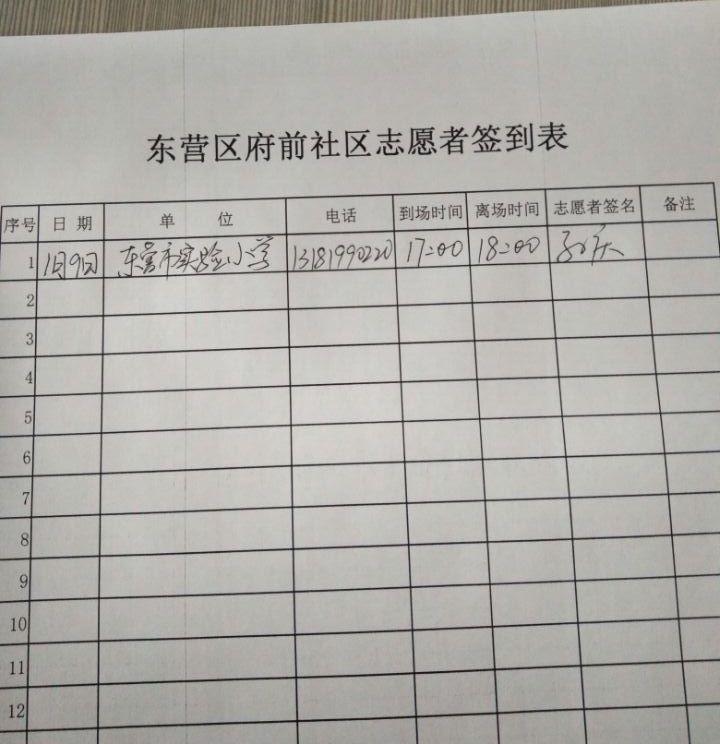 东营区府前社区志愿者签到表
序号 日期 单位 电话 到场时间 离场时间 志愿者签名 备注
1 1月9日 东营市实验小学 13181990220 17:00 18:00
2
3
4
5
6
7
8
9
10
11
12